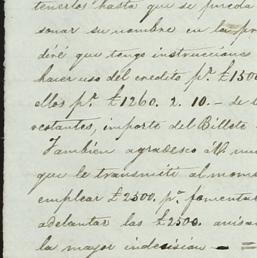 tenerlos hasta que se pueda
sonar su nombre en la pr
diré que tengo instrucciones
hacer uso del credito pr. £1500
ellos pr. £1260. 2. 10. - de l
restantes, importe del Billete
Tambien agradesco á V. mu
que le transmite al mome
emplear £2500. pr. fomentar
adelantar las £2500. avisan
la mayor indecision -